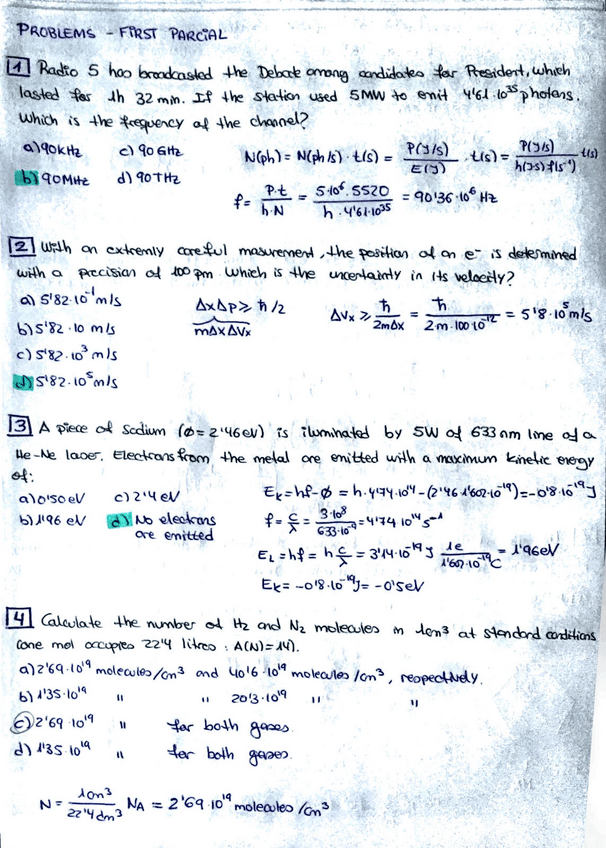 PROBLEMS - FIRST PARCIAL
1 Radio 5 has broadcasted the Debate among candidates for President, which
lasted for 1h 32 min. If the station used 5MW to emit 4'61·10^35 photons.
Which is the frequency of the channel?
a) 90KHz c) 90 GHz
b) 90MHz d) 90THz
N(ph) = N(ph/s) · t(s) = P(J/s)/E(J) · t(s) = P(J/s)/h(J·s)f(s^-1) · t(s)
f = P·t/h·N = 5·10^6·5520/h·4'61·10^35 = 90'36·10^6 Hz
2 With an extremly careful masurement, the position of an e^- is determined
with a precision of 100 pm. Which is the uncertainty in its velocity?
a) 5'82·10^-1 m/s
b) 5'82·10 m/s
c) 5'82·10^3 m/s
d) 5'82·10^5 m/s
ΔxΔp ≥ ħ/2
mΔxΔVx
ΔVx ≥ ħ/2mΔx = ħ/2·m·100·10^-12 = 5'8·10^5 m/s
3 A piece of Sodium (Φ = 2'46 eV) is iluminated by 5W of 633 nm line of a
He-Ne laser. Electrons from the metal are emitted with a maximum kinetic energy
of:
a) 0'50 eV c) 2'4 eV
b) 1'96 eV d) No electrons
are emitted
Ek = hf - Φ = h·4'74·10^14 - (2'46·1'602·10^-19) = -0'8·10^-19 J
f = c/λ = 3·10^8/633·10^-9 = 4'74 10^14 s^-1
EL = hf = h c/λ = 3'14·10^-19 J 1e/1'602·10^-19 C = 1'96eV
Ek = -0'8·10^-19 J = -0'5eV
4 Calculate the number of H2 and N2 molecules in 1cm^3 at standard conditions
(one mol occupies 22'4 litres ; A(N)=14).
a) 2'69·10^19 molecules/cm^3 and 40'6·10^19 molecules/cm^3, respectively.
b) 1'35·10^19 " " 20'3·10^19 " "
c) 2'69·10^19 " for both gases.
d) 1'35·10^19 " for both gases.
N = 1cm^3/22'4 dm^3 NA = 2'69·10^19 molecules/cm^3